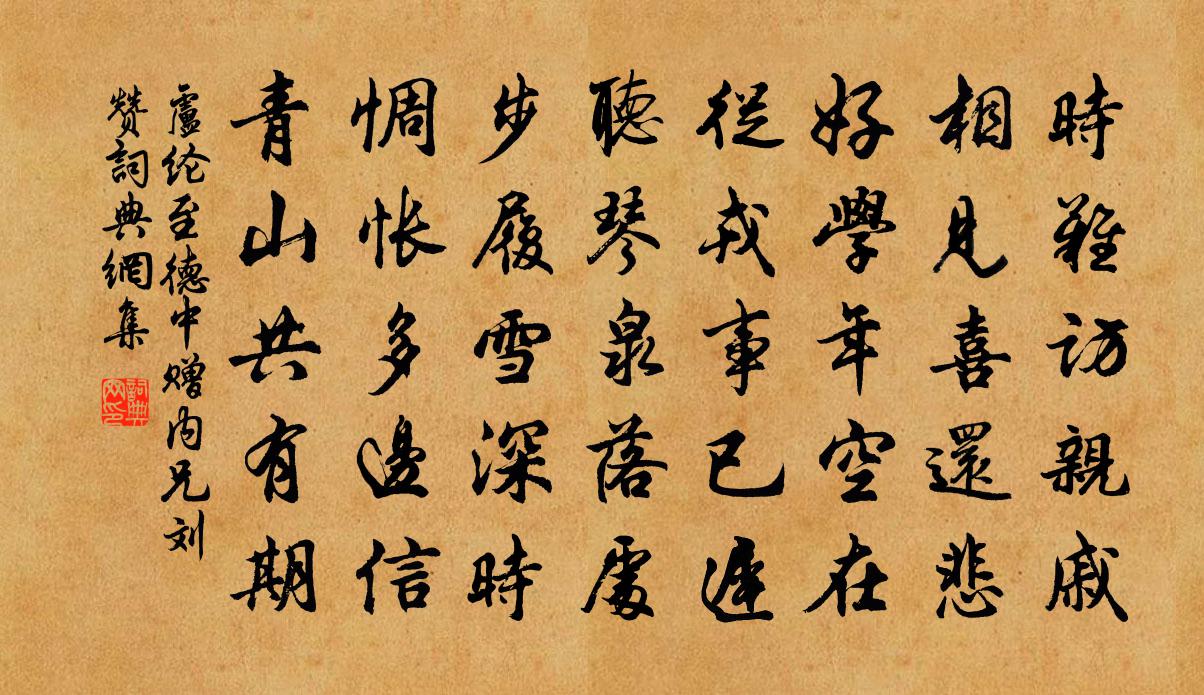 時難訪親戚
相見喜還悲
好學年空在
從戎事已遲
聽琴泉落處
步履雪深時
惆悵多邊信
青山共有期
盧纶至德中赠内兄刘
赞詞典網集
詞典網印